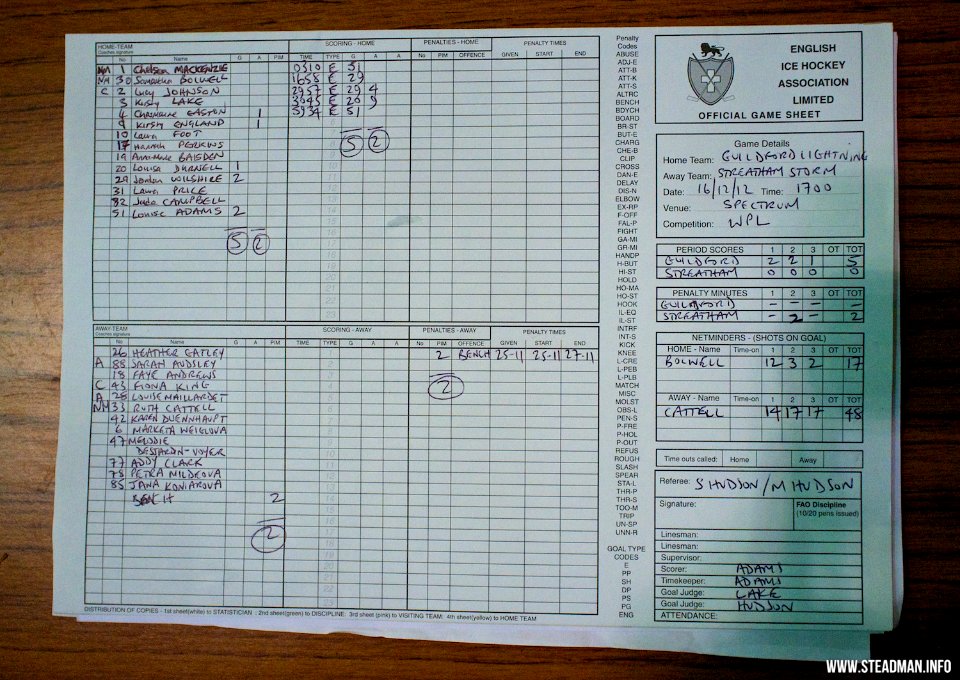 HOME-TEAM
Coaches signature
SCORING - HOME
PENALTIES - HOME
PENALTY TIMES
No Name G A PIM TIME TYPE G A A No PIM OFFENCE GIVEN START END
NM 1 Chelsea MACKENZIE 0310 E 51
NM 30 Samantha BOLWELL 1658 E 29
C 2 Lucy JOHNSON 2957 E 29 4
3 Kirsty LAKE 3045 E 20 9
4 Charmaine EASTON 1 3934 E 51
9 Kirsty ENGLAND 1
10 Laura FOOT
17 Hannah PERKINS 5 2
19 Anna-Marie BAISDEN
20 Louisa DURNELL 1
29 Jordan WILSHIRE 2
31 Laura PRICE
82 Jade CAMPBELL
51 Louise ADAMS 2
5 2
AWAY-TEAM
Coaches signature
SCORING - AWAY
PENALTIES - AWAY
PENALTY TIMES
No Name G A PIM TIME TYPE G A A No PIM OFFENCE GIVEN START END
26 HEATHER GATLEY 2 BENCH 25-11 25-11 27-11
A 88 SARAH AUDSLEY
18 FAYE ANDREWS 2
C 43 FIONA KING
A 28 LOUISE MAILLARDET
NM 33 RUTH CATTELL
42 KAREN DUENNHAUPT
6 MARKETA WEIGLOVA
47 MELODIE
DESJARDIN-VOYER
77 ADDY CLARK
78 PETRA MILDKOVA
85 JANA KONIAROVA
BENCH 2
2
DISTRIBUTION OF COPIES - 1st sheet(white) to STATISTICIAN : 2nd sheet(green) to DISCIPLINE: 3rd sheet (pink) to VISITING TEAM: 4th sheet(yellow) to HOME TEAM
Penalty
Codes
ABUSE
ADJ-E
ATT-B
ATT-K
ATT-S
ALTRC
BENCH
BDYCH
BOARD
BR-ST
BUT-E
CHARG
CHE-B
CLIP
CROSS
DAN-E
DELAY
DIS-N
ELBOW
EX-RP
F-OFF
FAL-P
FIGHT
GA-MI
GR-MI
HANDP
H-BUT
HI-ST
HOLD
HO-MA
HO-ST
HOOK
IL-EQ
IL-ST
INTRF
INT-S
KICK
KNEE
L-CRE
L-PEB
L-PLB
MATCH
MISC
MOLST
OBS-L
PEN-S
P-FRE
P-HOL
P-OUT
REFUS
ROUGH
SLASH
SPEAR
STA-L
THR-P
THR-S
TOO-M
TRIP
UN-SP
UNN-R
GOAL TYPE
CODES
E
PP
SH
DP
PS
PG
ENG
ENGLISH
ICE HOCKEY
ASSOCIATION
LIMITED
OFFICIAL GAME SHEET
Game Details
Home Team: GUILDFORD LIGHTNING
Away Team: STREATHAM STORM
Date: 16/12/12 Time: 1700
Venue: SPECTRUM
Competition: WPL
PERIOD SCORES 1 2 3 OT TOT
GUILDFORD 2 2 1 5
STREATHAM 0 0 0 0
PENALTY MINUTES 1 2 3 OT TOT
GUILDFORD - - - -
STREATHAM - 2 - 2
NETMINDERS - (SHOTS ON GOAL)
HOME - Name Time-on 1 2 3 OT TOT
BOLWELL 12 3 2 17
AWAY - Name Time-on 1 2 3 OT TOT
CATTELL 14 17 17 48
Time outs called: Home Away
Referee: S HUDSON / M HUDSON
Signature: FAO Discipline
(10/20 pens issued)
Linesman:
Linesman:
Supervisor:
Scorer: ADAMS
Timekeeper: ADAMS
Goal Judge: LAKE
Goal Judge: HUDSON
ATTENDANCE:
WWW.STEADMAN.INFO